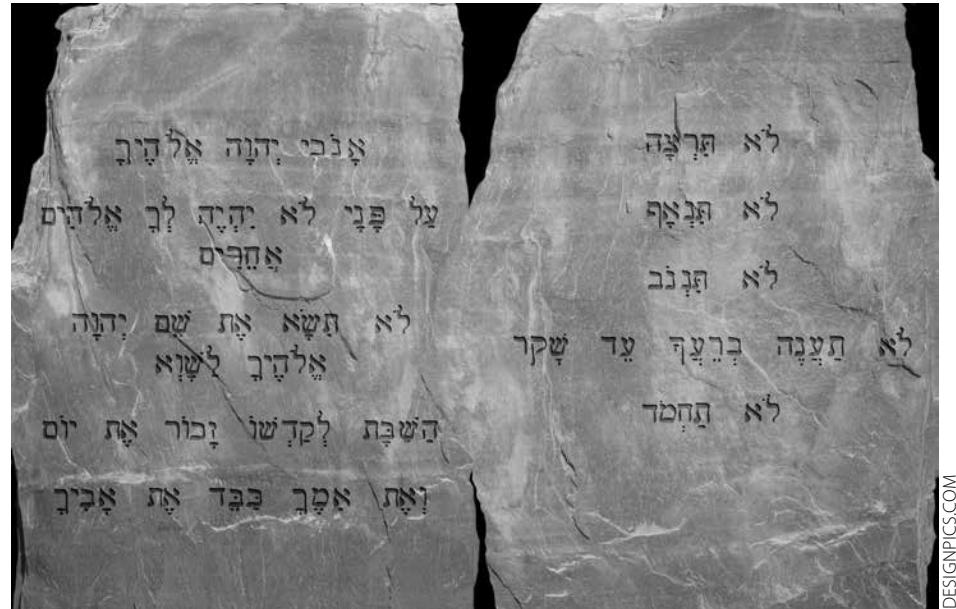 אָנֹכִי יְהוָה אֱלֹהֶיךָ
עַל פָּנָי לֹא יִהְיֶה לְךָ אֱלֹהִים
אֲחֵרִים
לֹא תִשָּׂא אֶת שֵׁם יְהוָה
אֱלֹהֶיךָ לַשָּׁוְא
הַשַּׁבָּת לְקַדְשׁוֹ זָכוֹר אֶת יוֹם
וְאֶת אִמֶּךָ כַּבֵּד אֶת אָבִיךָ
לֹא תִּרְצָח
לֹא תִּנְאָף
לֹא תִּגְנֹב
לֹא תַעֲנֶה בְרֵעֲךָ עֵד שָׁקֶר
לֹא תַחְמֹד
DESIGNPICS.COM